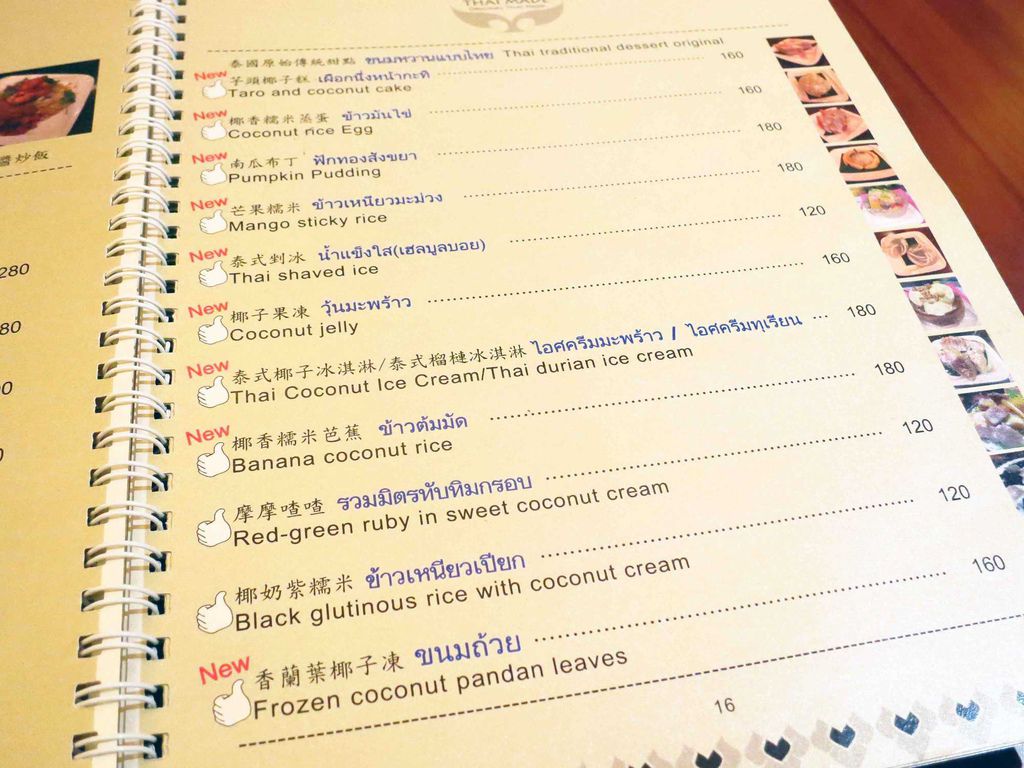 THAI MADE
泰國原始傳統甜點 ขนมหวานแบบไทย Thai traditional dessert original
New 芋頭椰子糕 เผือกนึ่งหน้ากะทิ 160
Taro and coconut cake
New 椰香糯米蒸蛋 ข้าวมันไข่ 160
Coconut rice Egg
New 南瓜布丁 ฟักทองสังขยา 180
Pumpkin Pudding
New 芒果糯米 ข้าวเหนียวมะม่วง 180
Mango sticky rice
New 泰式剉冰 น้ำแข็งใส(เฮลบูลบอย) 120
Thai shaved ice
New 椰子果凍 วุ้นมะพร้าว 160
Coconut jelly
New 泰式椰子冰淇淋/泰式榴槤冰淇淋 ไอศครีมมะพร้าว / ไอศครีมทุเรียน 180
Thai Coconut Ice Cream/Thai durian ice cream
New 椰香糯米芭蕉 ข้าวต้มมัด 180
Banana coconut rice
摩摩喳喳 รวมมิตรทับทิมกรอบ 120
Red-green ruby in sweet coconut cream
椰奶紫糯米 ข้าวเหนียวเปียก 120
Black glutinous rice with coconut cream
New 香蘭葉椰子凍 ขนมถ้วย 160
Frozen coconut pandan leaves
16
醬炒飯
280
80
0